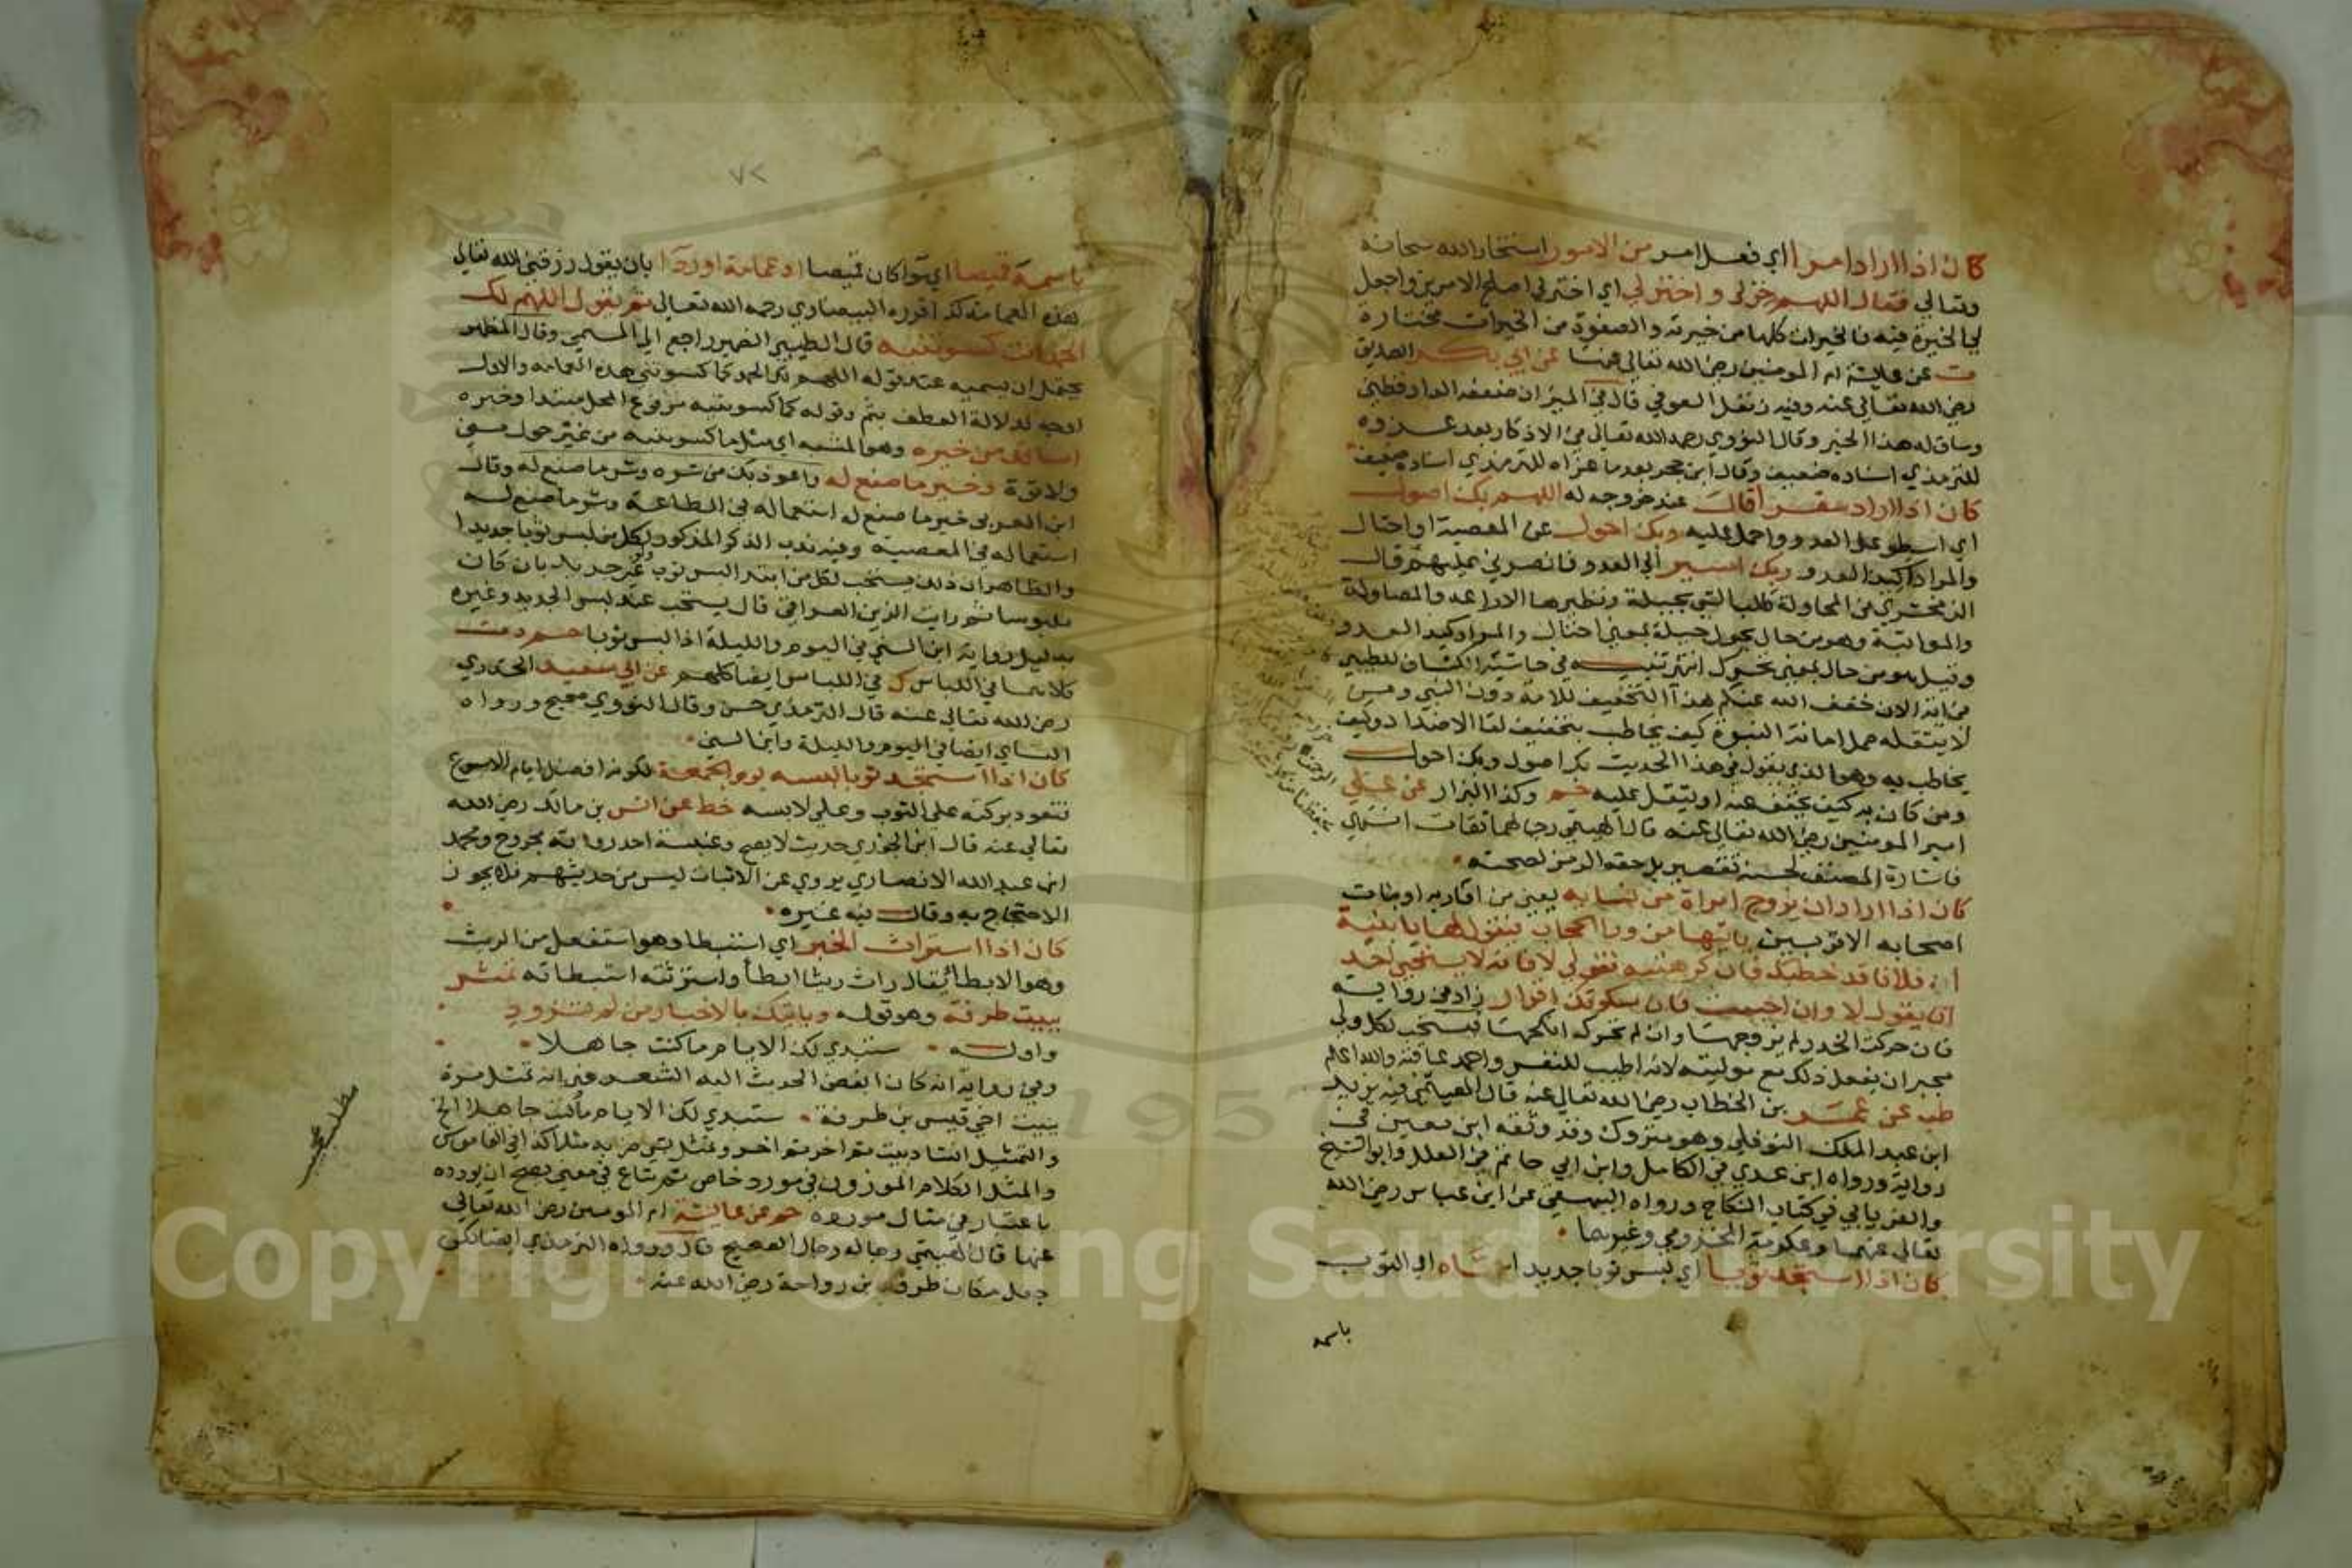 كان اذا اراد امرا اي فعل امر من الامور استخار الله سبحانه
وتعالى فقال اللهم خر لي واختر لي اي اختر لي اصلح الامرين واجعل
لي الخيرة فيه فالخيرات كلها من خيرته والصفوة من الخيرات مختارة
ت عن عايشة ام المومنين رضي الله تعالى عنها عن ابي بكر الصديق
رضي الله تعالى عنه وفيه زنفل العوفي قال في الميزان ضعفه الدارقطني
وساق له هذا الخبر وقال النووي رحمه الله تعالى في الاذكار بعد عزوه
للترمذي اسناده ضعيف وقال ابن حجر بعد ما عزاه للترمذي اسناده ضعيف
كان اذا اراد سفرا قال عند خروجه له اللهم بك اصول
اي اسطو على العدو واحمل عليه وبك احول عن المعصية او احتال
والمراد كيد العدو وبك اسير الى العدو فانصرني عليهم قال
الزمخشري في المحاولة طلب الشي بحيلة ونظيرها الاراغة والمصاولة
والمواثبة وهو من حال يحول حيلة بمعنى احتال والمراد كيد العدو
وقيل هو من حال بمعنى تحرك انتهى تنبيه في حاشية الكشاف للطيبي
في اية الان خفف الله عنكم هذا التخفيف للامة دون النبي ومن
لا يثقله حمل امانة النبوة كيف يخاطب بتخفيف لقا الاضداد وكيف
يخاطب به وهو الذي يقول في هذا الحديث بك اصول وبك احول
ومن كان به كيف يخفف عنه او يثقل عليه حم وكذا البزار عن علي
امير المومنين رضي الله تعالى عنه قال الهيثمي رجالهما ثقات انتهى
فاشارة المصنف لحسنه تقصير بل حقه الرمز لصحته
كان اذا اراد ان يزوج امراة من نسايه يعني من اقاربه او بنات
اصحابه الاقربين ياتيها من ورا الحجاب فيقول لها يا بنية
ان فلانا قد خطبك فان كرهتيه فقولي لا فانه لا يستحي احد
ان يقول لا وان احببت فان سكوتك اقرار زاد في رواية
فان حركت الخدر لم يزوجها وان لم تحركه انكحها فيستحب لكل ولي
مجبر ان يفعل ذلك مع موليته لانه اطيب للنفس واحمد عاقبة والله اعلم
طب عن عمر بن الخطاب رضي الله تعالى عنه قال الهيثمي فيه يزيد
ابن عبد الملك النوفلي وهو متروك وقد وثقه ابن معين في
رواية ورواه ابن عدي في الكامل وابن ابي حاتم في العلل وابو الشيخ
والفريابي في كتاب النكاح ورواه البيهقي عن ابن عباس رضي الله
تعالى عنهما وعكرمة المخزومي وغيرهما
كان اذا استجد ثوبا اي لبس ثوبا جديدا سماه اي الثوب
باسمه
٧٢
باسمه قميصا اي سوا كان قميصا او عمامة او ردا بان يقول رزقني الله تعالى
هذه العمامة كذا قرره البيضاوي رحمه الله تعالى ثم يقول اللهم لك
الحمد انت كسوتنيه قال الطيبي الضمير راجع الى المسمى وقال المظهر
يحتمل ان يسميه عند قوله اللهم لك الحمد كما كسوتني هذه العمامه والاول
اوجه لدلالة العطف بثم وقوله كما كسوتنيه مرفوع المحل مبتدا وخبره
اسالك من خيره وهو المشبه اي مثل ما كسوتنيه من غير حول مني
ولا قوة وخير ما صنع له واعوذ بك من شره وشر ما صنع له وقال
ابن العربي خير ما صنع له استعماله في الطاعة وشر ما صنع له
استعماله في المعصية وفيه ندب الذكر المذكور لكل من لبس ثوبا جديدا
والظاهر ان ذلك يستحب لكل من ابتدا لبس ثوب غير جديد بان كان
ملبوسا ثم رايت الزين العراقي قال يستحب عند لبس الجديد وغيره
بدليل رواية ابن السني في اليوم والليلة اذا لبس ثوبا حم د ت
كلاهما في اللباس ك في اللباس ايضا كلهم عن ابي سعيد الخدري
رضي الله تعالى عنه قال الترمذي حسن وقال النووي صحيح ورواه
النساي ايضا في اليوم والليلة وابن السني
كان اذا استجد ثوبا لبسه يوم الجمعة لكونه افضل ايام الاسبوع
فتعود بركته على الثوب وعلى لابسه خط عن انس بن مالك رضي الله
تعالى عنه قال ابن الجوزي حديث لا يصح وعنبسة احد رواته مجروح ومحمد
ابن عبد الله الانصاري يروي عن الاثبات ليس من حديثهم فلا يجوز
الاحتجاج به وقال فيه غيره
كان اذا استراث الخبر اي استبطا وهو استفعل من الريث
وهو الابطا يقال راث ريثا ابطأ واسترثته استبطاته تمثل
ببيت طرفة وهو قوله وياتيك بالاخبار من لم تزود
واوله ستبدي لك الايام ما كنت جاهلا
وفي رواية انه كان ابغض الحديث اليه الشعر غير انه تمثل مرة
ببيت اخي قيس بن طرفة ستبدي لك الايام ما كنت جاهلا الخ
والتمثيل انشاد بيت ثم اخر ثم اخر وتمثل بشي ضربه مثلا كذا في القاموس
والمثل الكلام الموزون في مورد خاص ثم شاع في معنى يصح ان يورده
باعتبار في مثال مورده حم عن عايشة ام المومنين رضي الله تعالى
عنها قال الهيثمي رجاله رجال الصحيح قال ورواه الترمذي ايضا لكن
جعل مكان طرفة بن رواحة رضي الله عنه
Copyright © King Saud University
1957